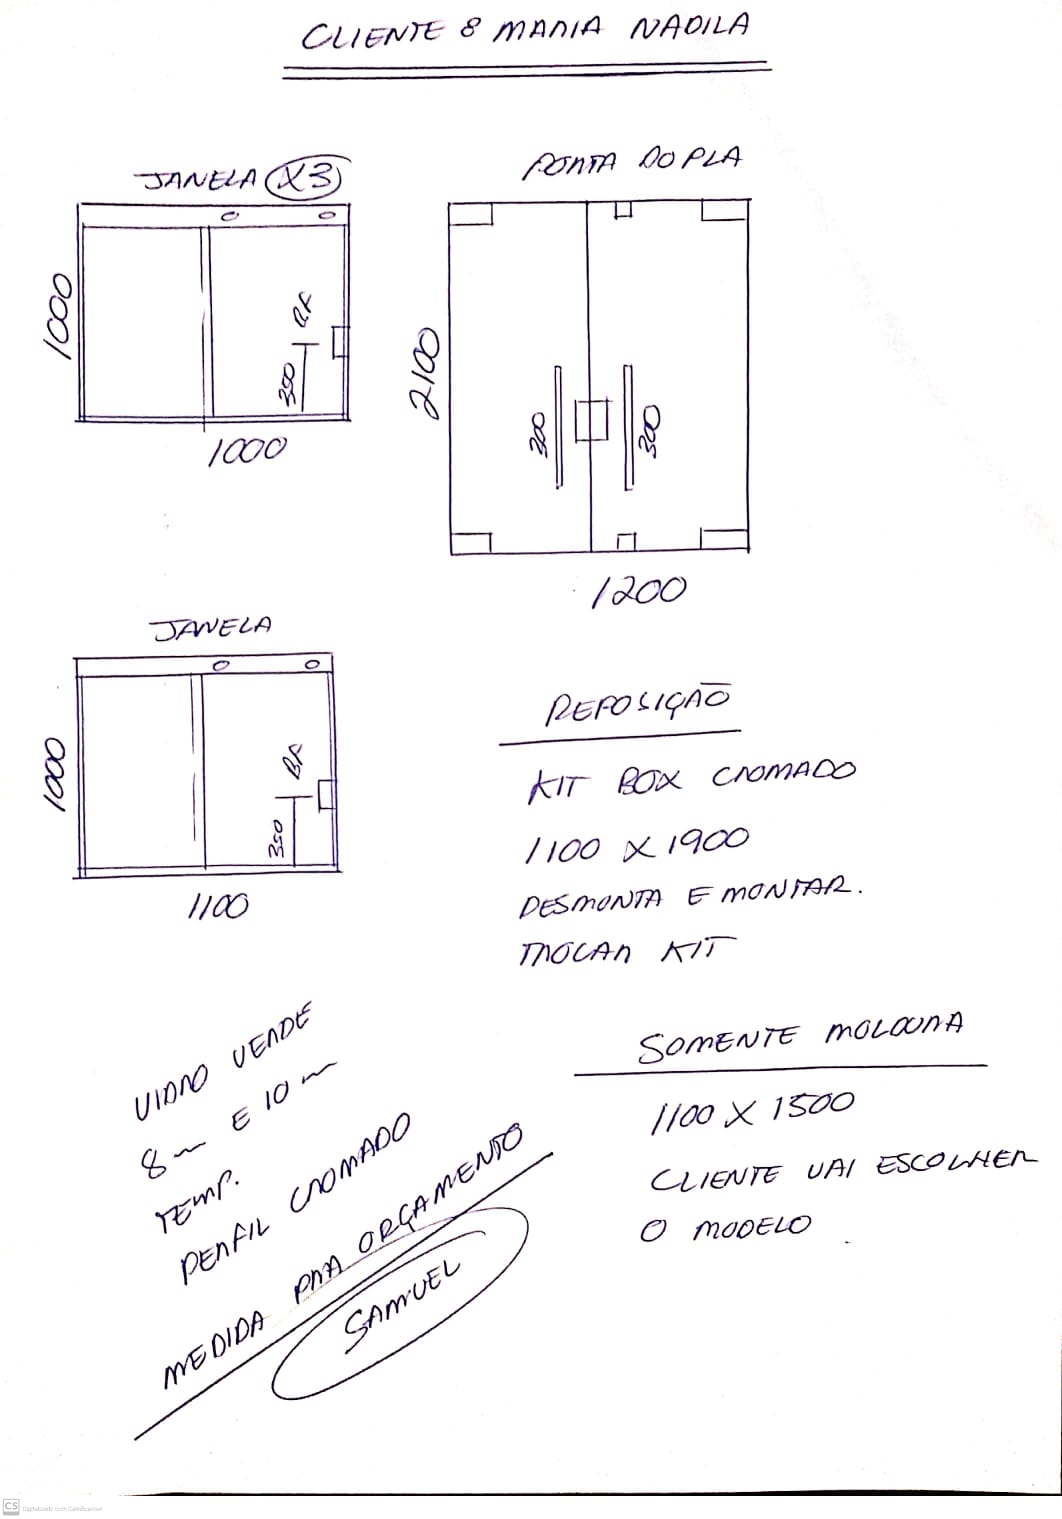 CLIENTE: MARIA NADILA
JANELA X3
1000
BX
350
1000
PORTA DUPLA
2100
300
300
1200
JANELA
1000
BX
350
1100
REPOSIÇÃO
KIT BOX CROMADO
1100 X 1900
DESMONTA E MONTAR.
TROCAR KIT
SOMENTE MOLDURA
1100 X 1500
CLIENTE VAI ESCOLHER
O MODELO
VIDRO VERDE
8mm E 10mm
TEMP.
PERFIL CROMADO
MEDIDA PARA ORÇAMENTO
SAMUEL
CS Digitalizado com CamScanner